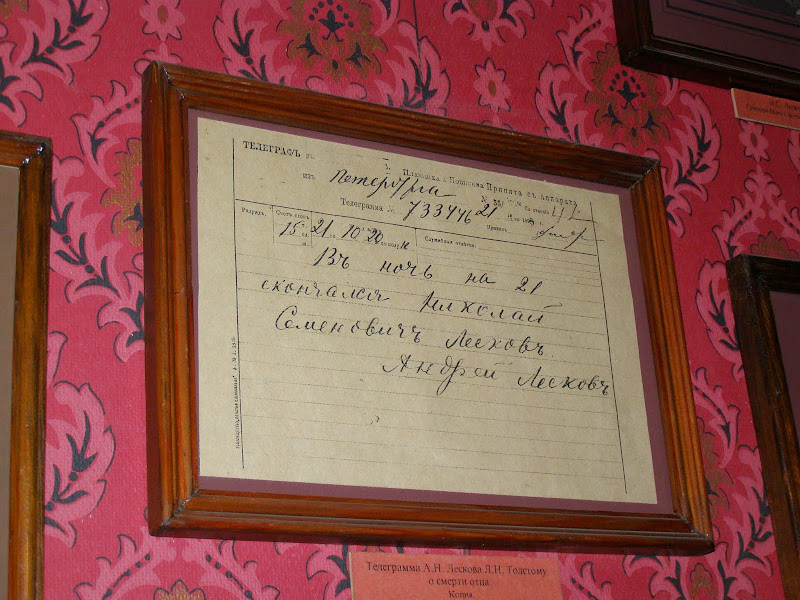 ТЕЛЕГРАФЪ въ
Ъ.
Плющика и Повитова Принята съ аппарата
изъ Петербурга
№
Телеграмма № 733446 21
Принялъ
Разрядъ.
Счетъ словъ
15
21
10
20
Служебныя отмѣтки.
Въ ночь на 21
скончался Николай
Семеновичъ Лесковъ.
Андрей Лесковъ
Телеграмма А.Н. Лескова Л.Н. Толстому
о смерти отца
Копия.